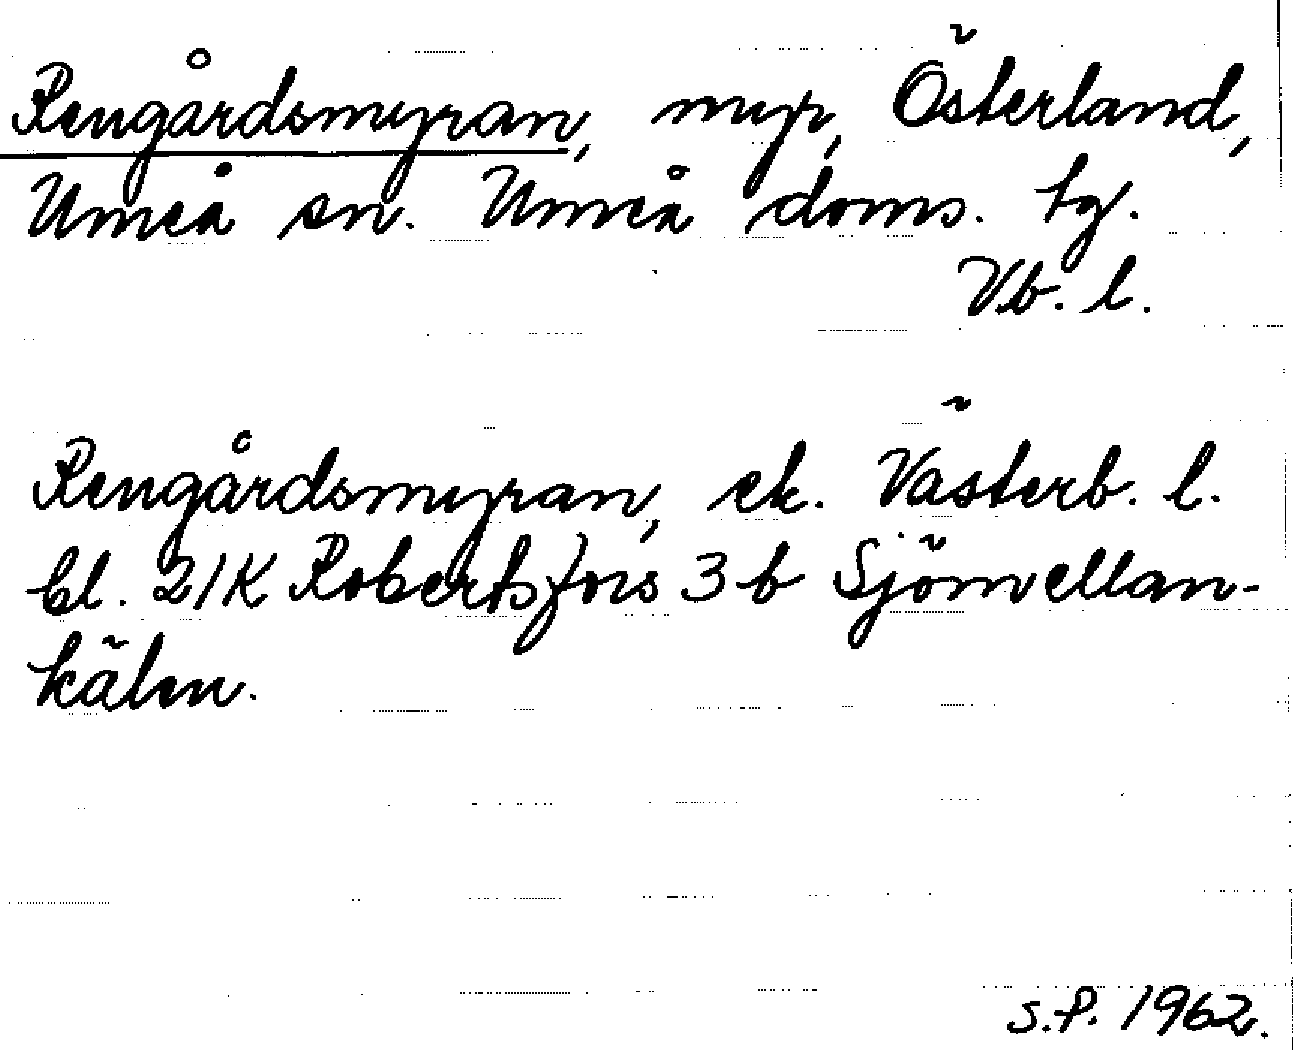 Rengårdsmyran, myr, Österland,
Umeå sn. Umeå doms. tg.
Vb. l.
Rengårdsmyran, ek. Västerb. l.
bl. 21K Robertsfors 3 b Sjömellan-
kälen.
S.P. 1962.